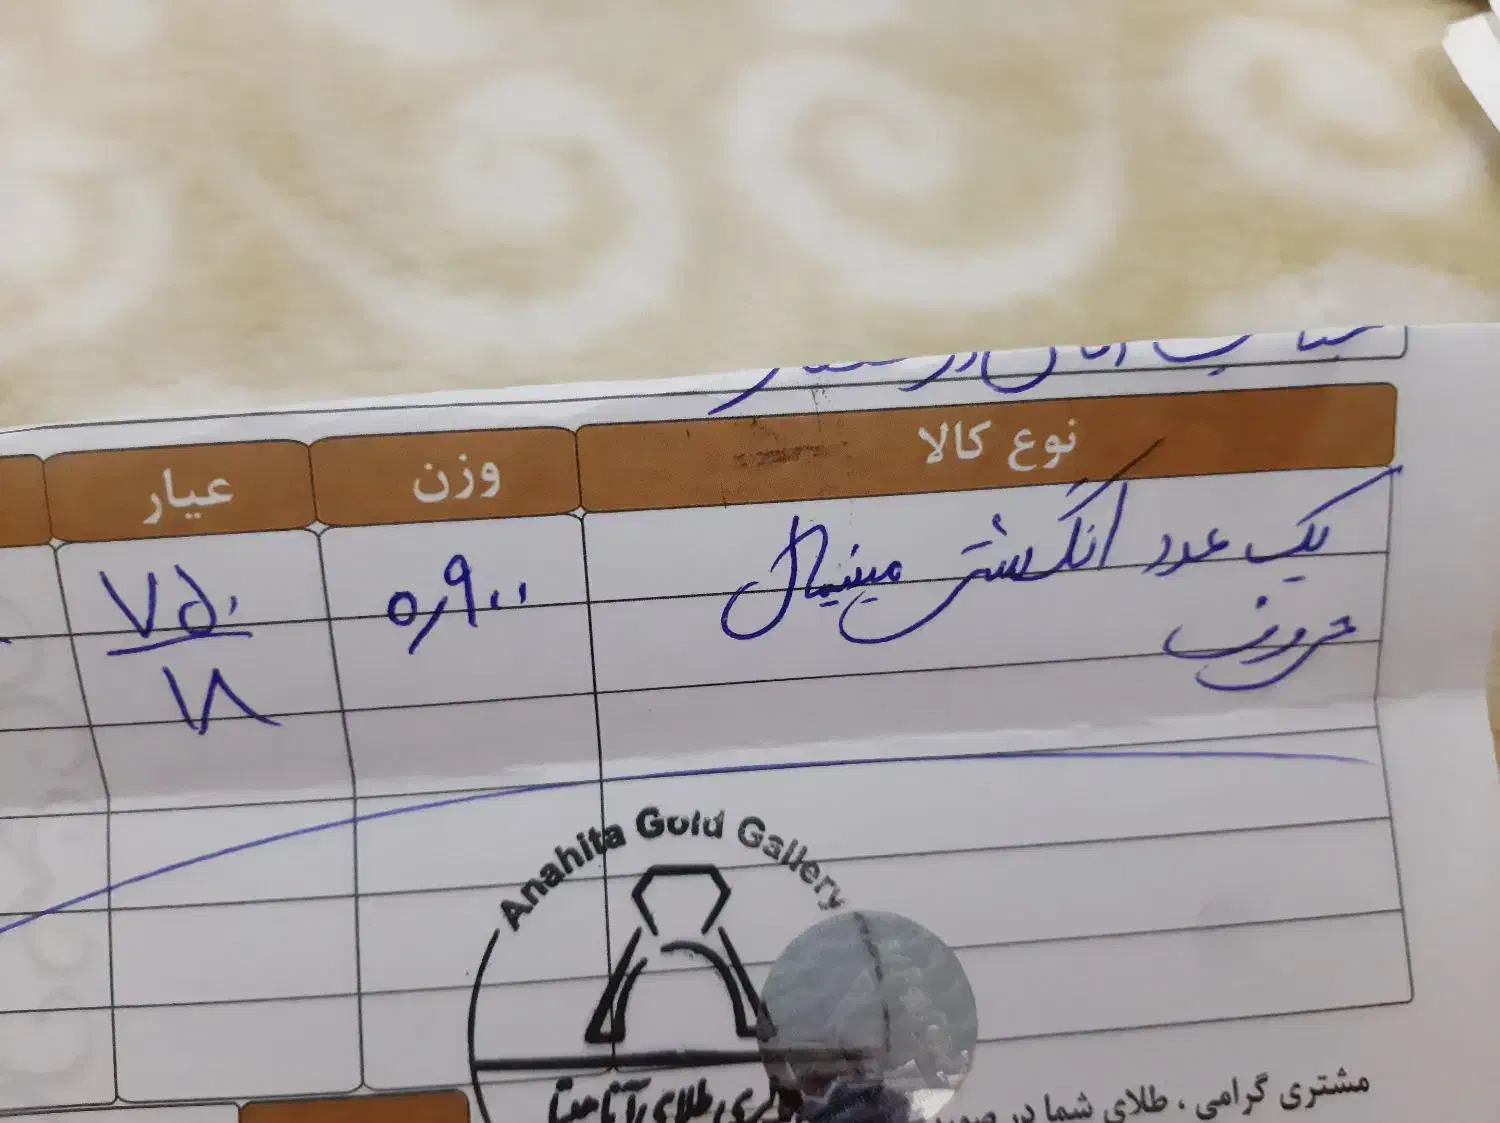 نوع کالا وزن عیار
یک عدد انگشتر مینیمال ۰٫۹۰۰ ۷۵۰
حروف ۱۸
Anahita Gold Gallery
طلای آناهیتا
مشتری گرامی ، طلای شما در